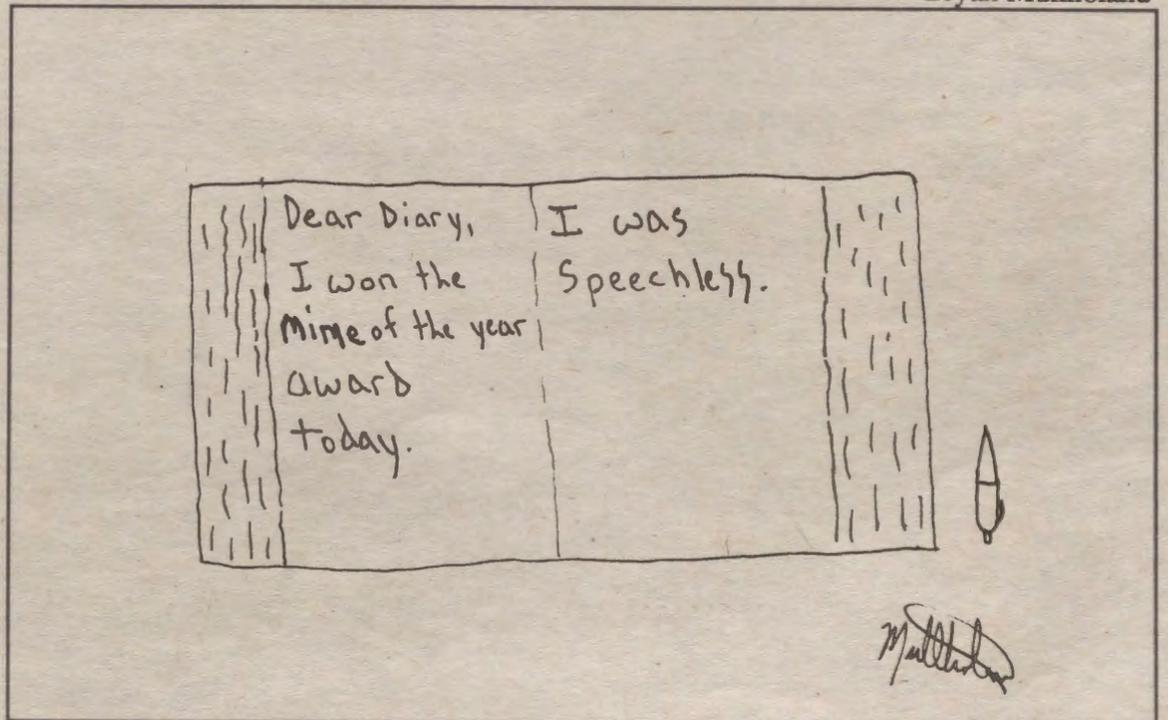 Dear Diary,
I won the
mime of the year
award
today.
I was
Speechless.